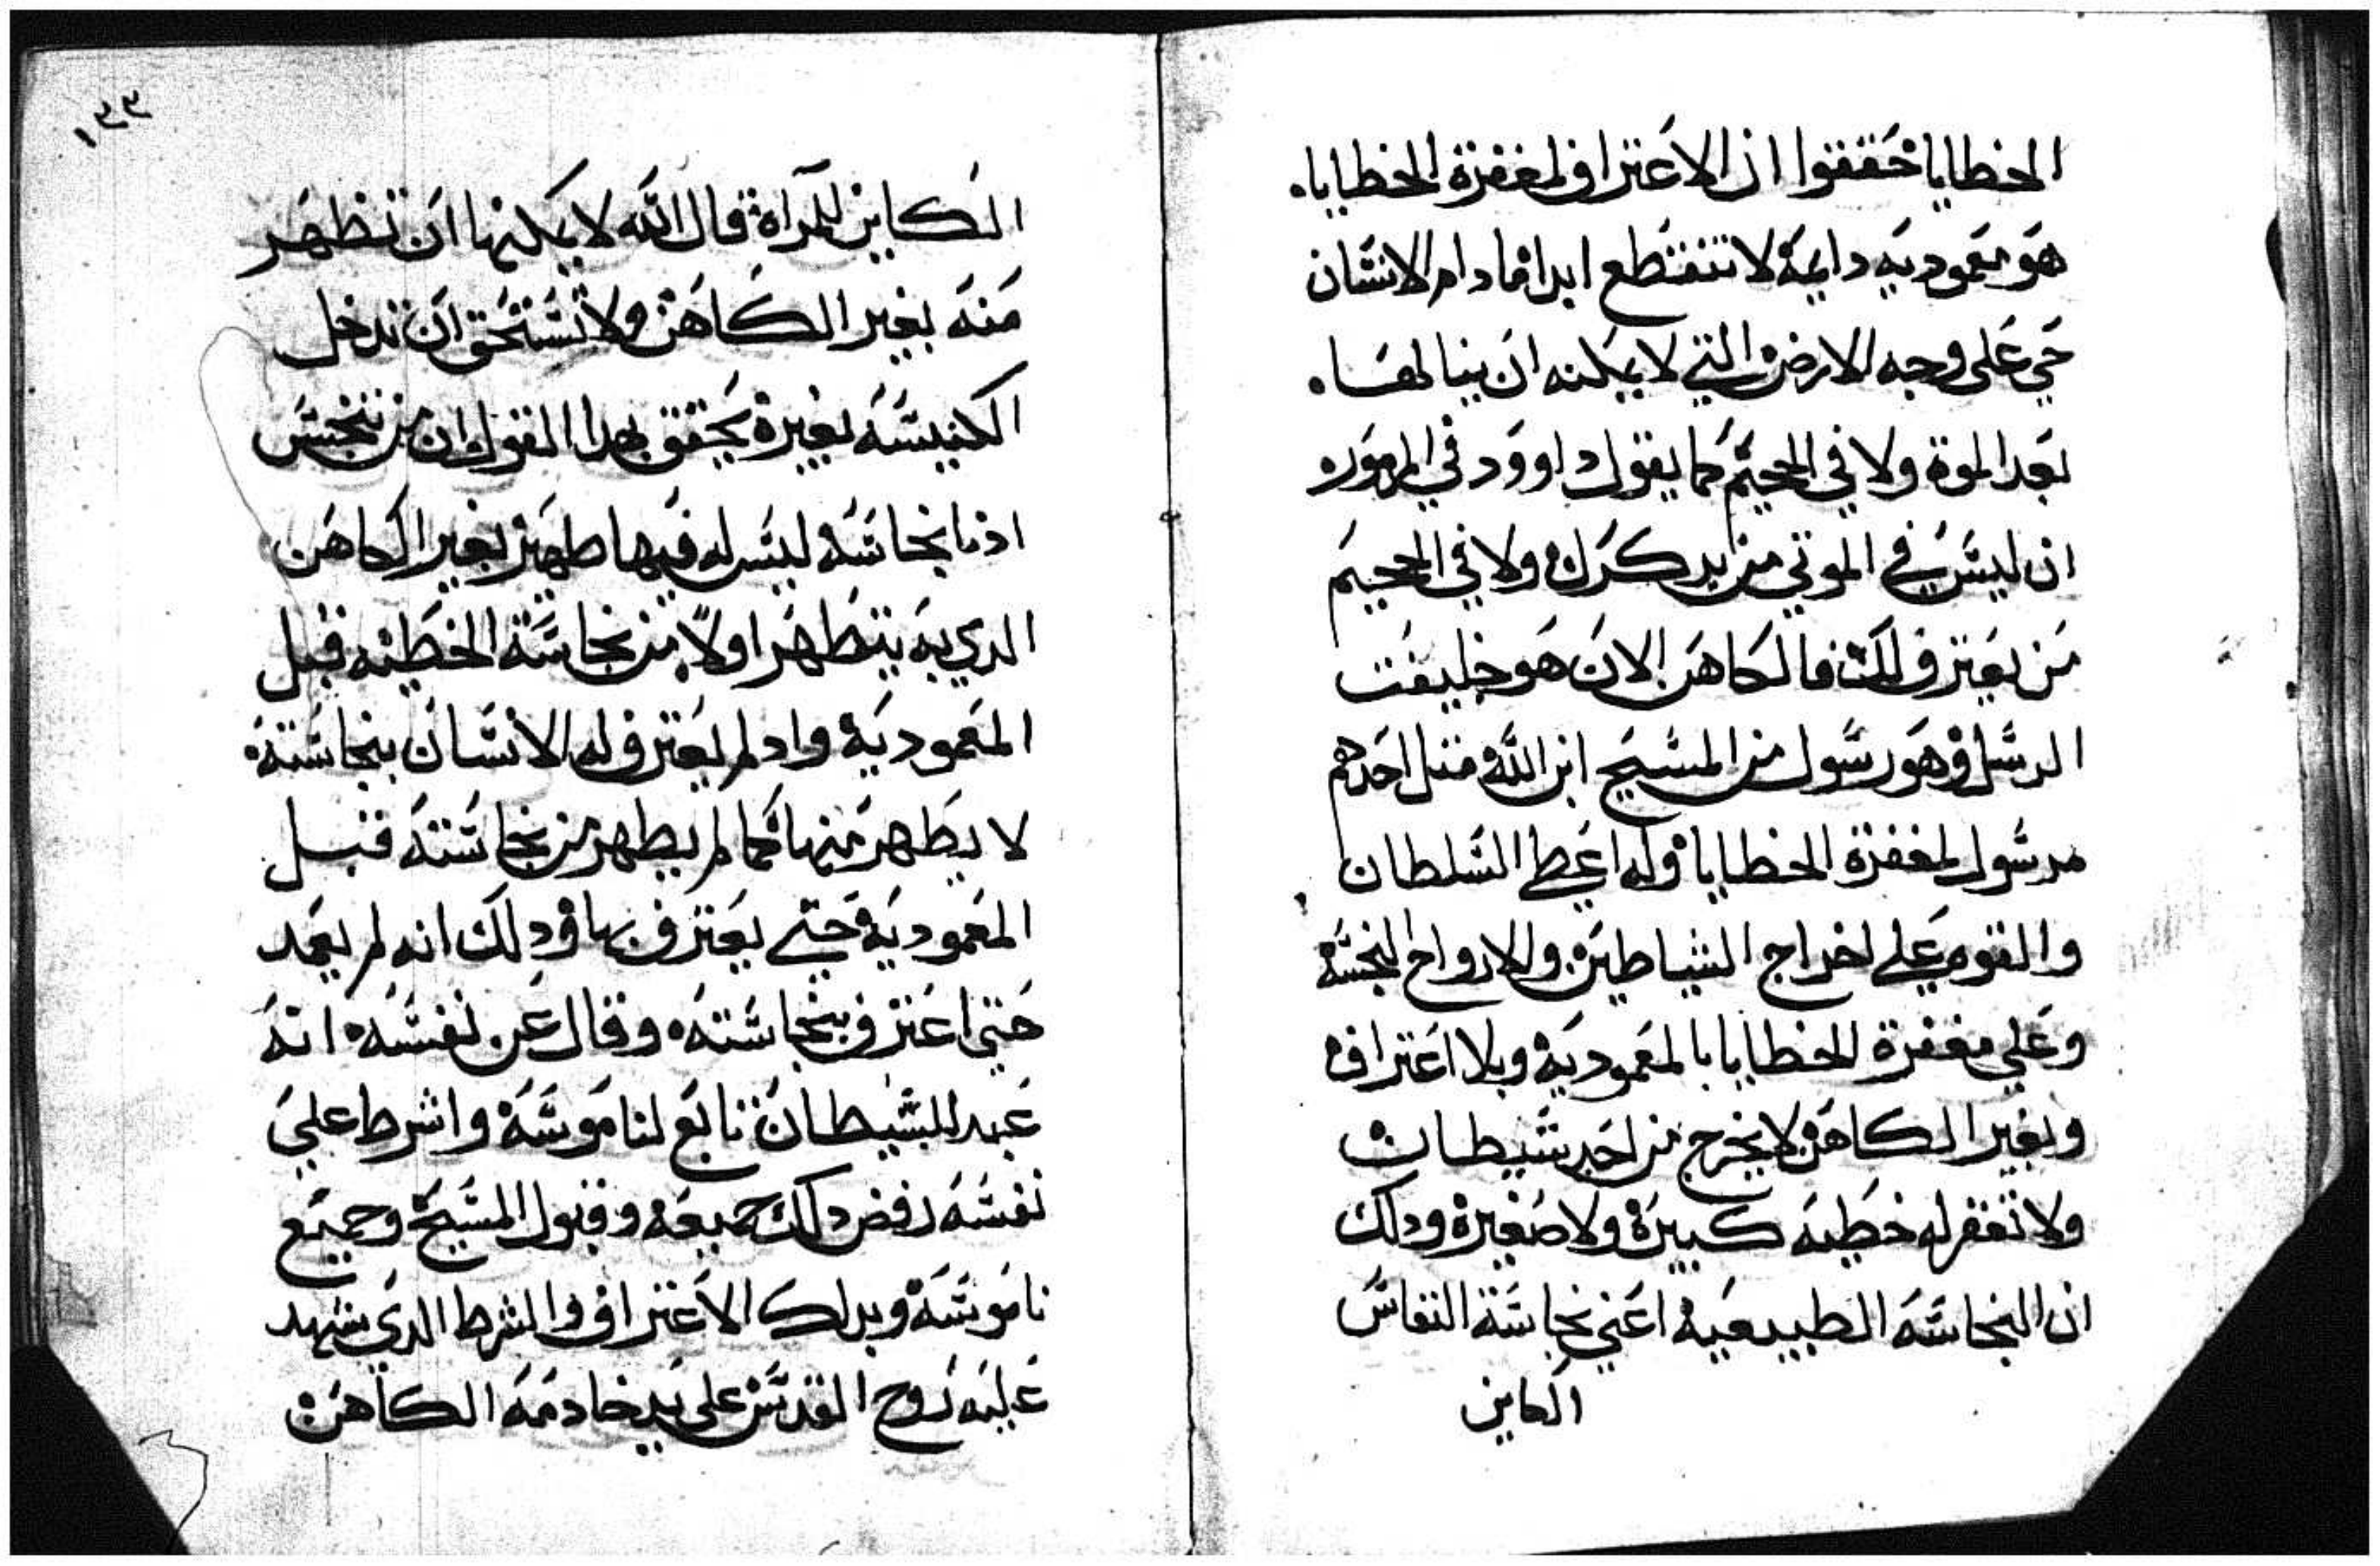 الخطايا حققوا ان الاعتراف لمغفرة الخطايا.
هو معموديه دايمة لا تنقطع ابدا ما دام الانسان
حي على وجه الارض التي لا يمكنه ان ينالها.
بعد الموة ولا في الجحيم كما يقول داوود في المزمور
ان ليس في الموتي من يدكرك ولا في الجحيم
من يعترف لك فالكاهن الان هو خليفت
الرسل وهو رسول من المسيح ابن الله متل احدهم
مرسول لمغفرة الخطايا وله اعطي السلطان
والقوه علي اخراج الشياطين والارواح النجسة
وعلي مغفرة الخطايا بالمعموديه وبلا اعتراف
وبغير الكاهن لا يخرج من احد شيطان
ولا تغفر له خطيه كبيرة ولا صغيرة ودلك
ان النجاسه الطبيعيه اعني نجاسة النفاس
الكاين
١٣٣
الكاين للمرآة قال الله لا يمكنها ان تطهر
منه بغير الكاهن ولا تستحق ان تدخل
الكنيسه بغيره يحقق بهدا القول ان من تنجس
ادنا نجاسه ليس له فيها طهر بغير الكاهن
الدي به يتطهر اولا من نجاسة الخطيه قبل
المعموديه واد لم يعترف له الانسان بنجاسته
لا يطهر منها كما لم يطهر من نجاسته قبل
المعموديه حتي يعترف بها ودلك انه لم يعمد
حتي اعترف بنجاسته وقال عن نفسه انه
عبد للشيطان تابع لناموسه واشرط علي
نفسه رفض دلك جميعه وقبول المسيح وجميع
ناموسه وبدلك الاعتراف والشرط الدي شهد
عليه روح القدس على يد خادمه الكاهن